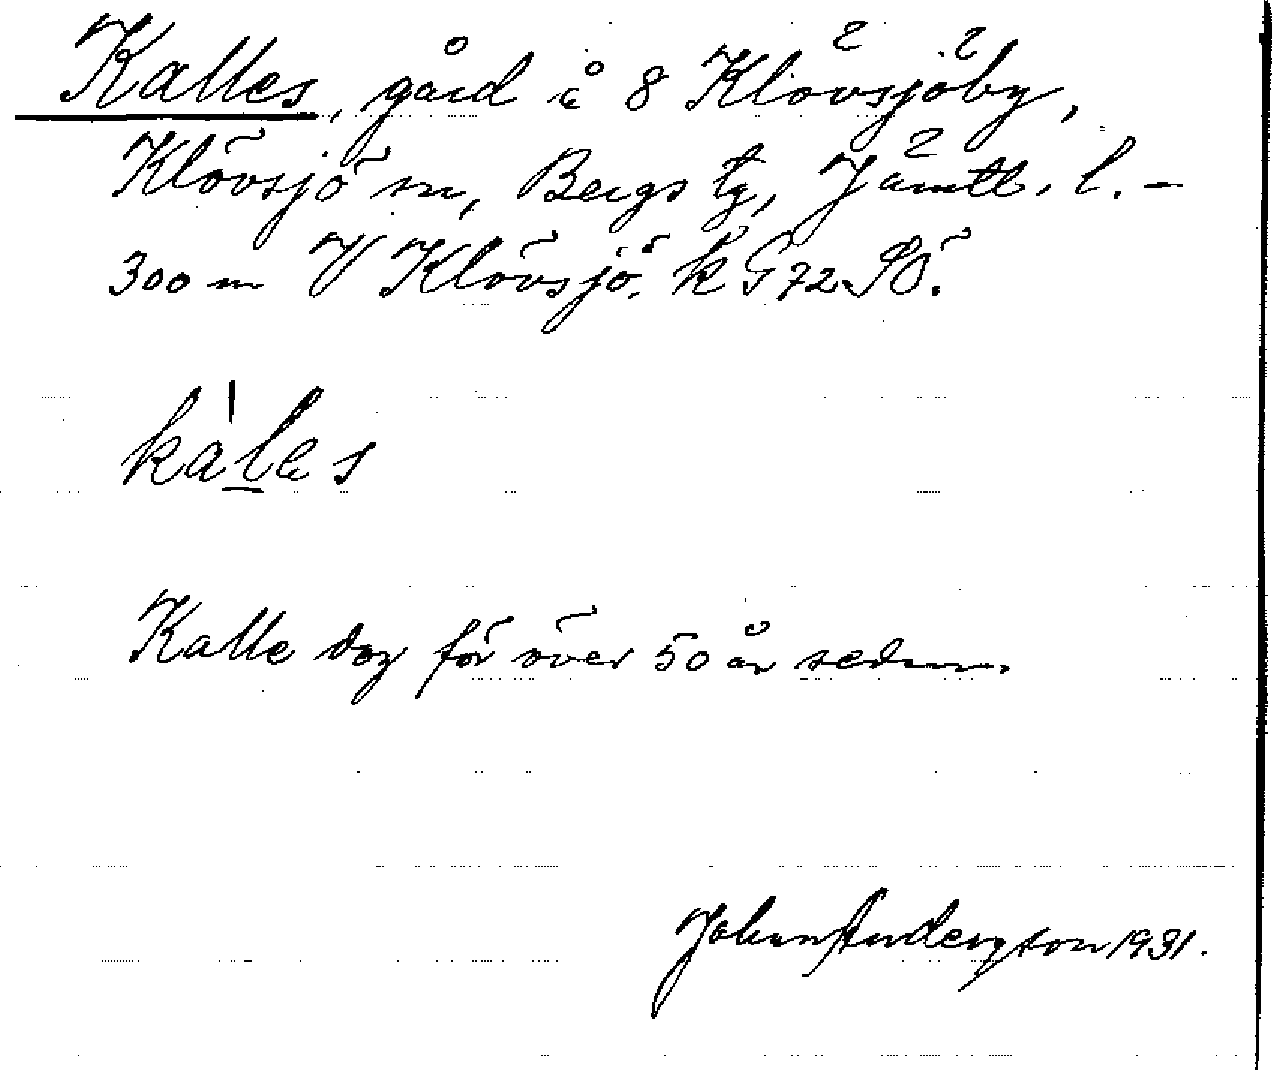 Kalles, gård å 8 Klövsjöby,
Klövsjö sn, Bergs tg, Jämtl. l. –
300 m V Klövsjö. k G 72 SÖ.
kàles
Kalle dog för över 50 år sedan.
Johan Anderzson 1931.